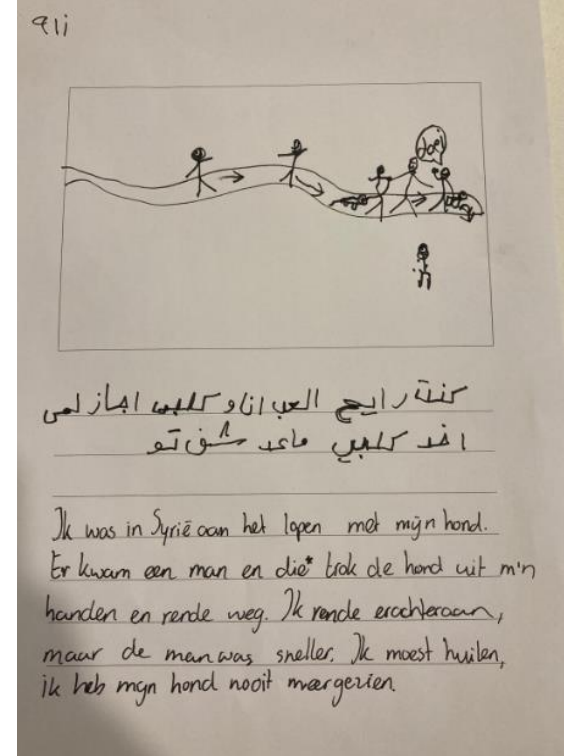 91i
doei
كنت رايح العب انا و كلبي اجاز لمى
اخد كلبي ماعد شفتو
Ik was in Syrië aan het lopen met mijn hond.
Er kwam een man en die* trok de hond uit m'n
handen en rende weg. Ik rende erachteraan,
maar de man was sneller. Ik moest huilen,
ik heb mijn hond nooit meer gezien.